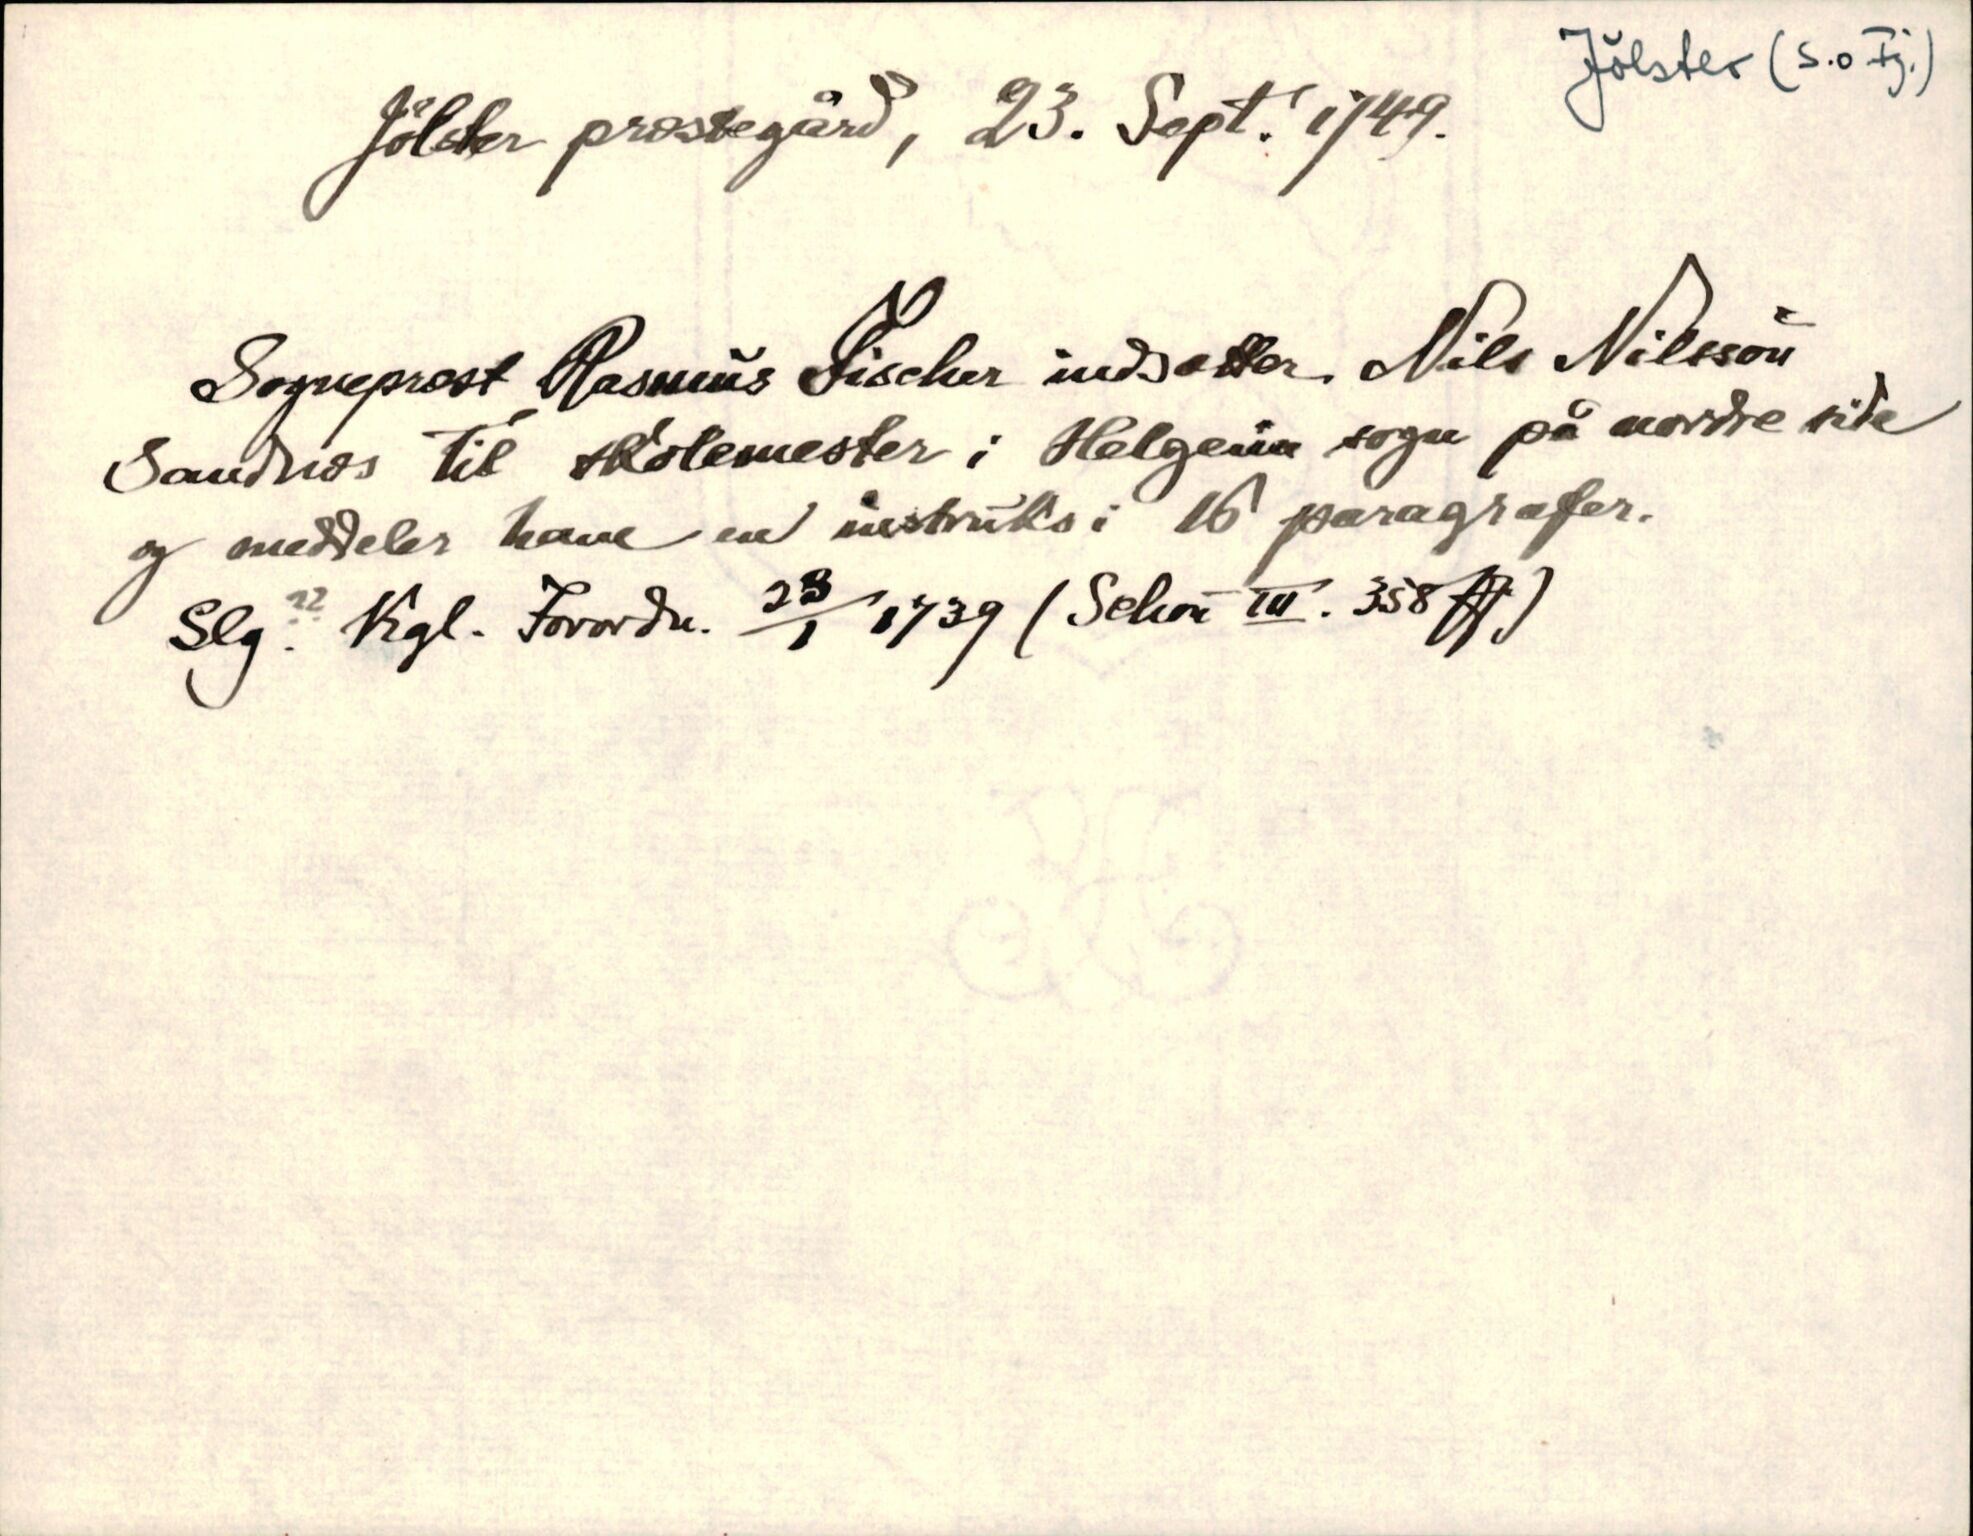 Jölster (S. o Fj.)
Jölster præstegård, 23. Sept. 1749.
Sogneprest Rasmus Fischer indsætter Nils Nilssøn
Sandnes til skolemester i Helgeim sogn på nordre side
og meddeler ham en instruks i 16 paragrafer.
Slg. ?? Kgl. Forordn. 23/1 1739 (Schou III. 358 ff)